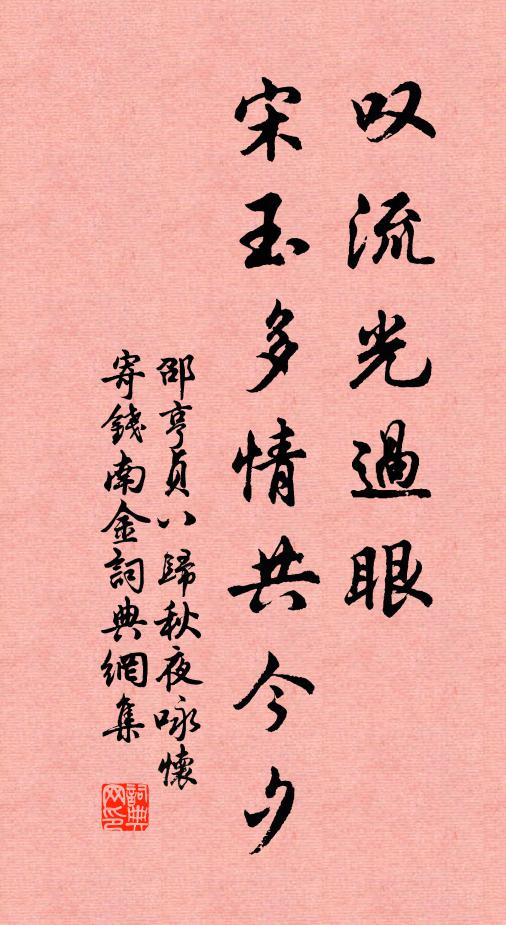 叹流光過眼
宋玉多情共今夕
邵亨貞八歸秋夜咏懷
寄錢南金詞典網集
詞典
网印